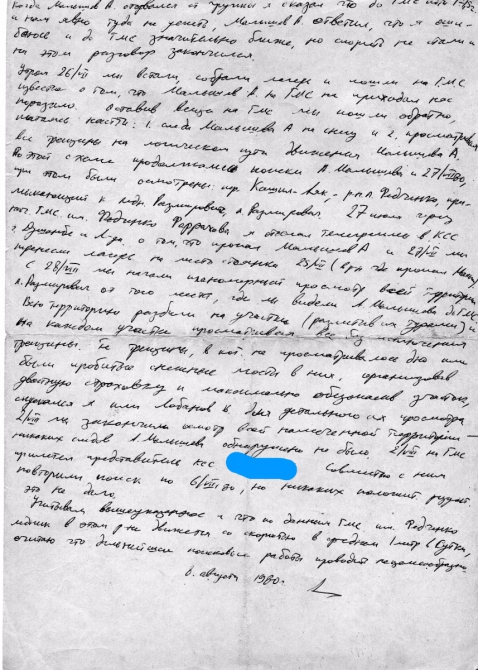 когда Малышев А. оторвался от группы я сказал что до ГМС
и нам явно туда не успеть, Малышев А. ответил, что я оши-
баюсь и до ГМС значительно ближе, но спорить не стали и
на этом разговор закончился.
Утром 26/VII мы встали, собрали лагерь и пошли на ГМС
известие о том, что Малышев А. на ГМС не приходил нас
поразило. Оставив вещи на ГМС мы пошли обратно,
пытаясь найти: 1. следы Малышева А на снегу и 2. просматривая
все трещины на логическом пути движения Малышева А.
По этой схеме продолжались поиски А. Малышева и 27/VII 80,
при этом были осмотрены: лед. Кашал-Аяк, л. Федченко, при-
мыкающий к леди. Розмировича, л. Розмирович. 27 июля через
нач. ГМС им. Федченко я отослал телеграммы в КСС
г. Душанбе и о том, что пропал Малышев А и 27/VII мы
перенесли лагерь на место стоянки 25/VII
С 28/VII мы начали планомерный просмотр всей территории
л. Розмирович от того места, где мы видели А. Малышева до ГМС.
Всю территорию разбили на участки (разметив их турами) и
на каждом участке просматривали все без исключения
трещины. Те трещины, в кот. не просматривалось дно или
были пробиты снежные мосты в них, организовав
двойную страховку и максимально обезопасив участок,
спускался я или Лобанов В. для детального их просмотра
2/VIII мы закончили осмотр всей намеченной территории —
никаких следов А. Малышева обнаружено не было. 2/VIII на ГМС
прилетел представитель КСС Совместно с ним
повторили поиск по 6/VIII 80, но никаких положит. результ.
это не дало.
Учитывая вышеуказанное и что по данным ГМС им. Федченко
ледник в этом р-не движется со скоростью в среднем 1 метр в сутки,
считаю что дальнейшие поисковые работы проводить нецелесообразно
6. августа 1980г.